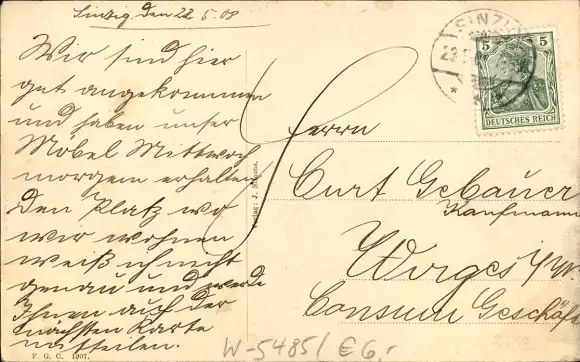 Sinzig den 22.5.08
Wir sind hier
gut angekommen
und haben unser
Möbel Mittwoch
morgen erhalten
Den Platz wo
wir wohnen
weiß ich nicht
genau und werde
Ihnen auf der
nächsten Karte
mitteilen.
F. G. C. 1907.
Verlag: J.
SINZIG
5 5
DEUTSCHES REICH
Herrn
Curt Gebauer
Kaufmann
Wirges
Consum Geschäft
W-5485/ € 6,-